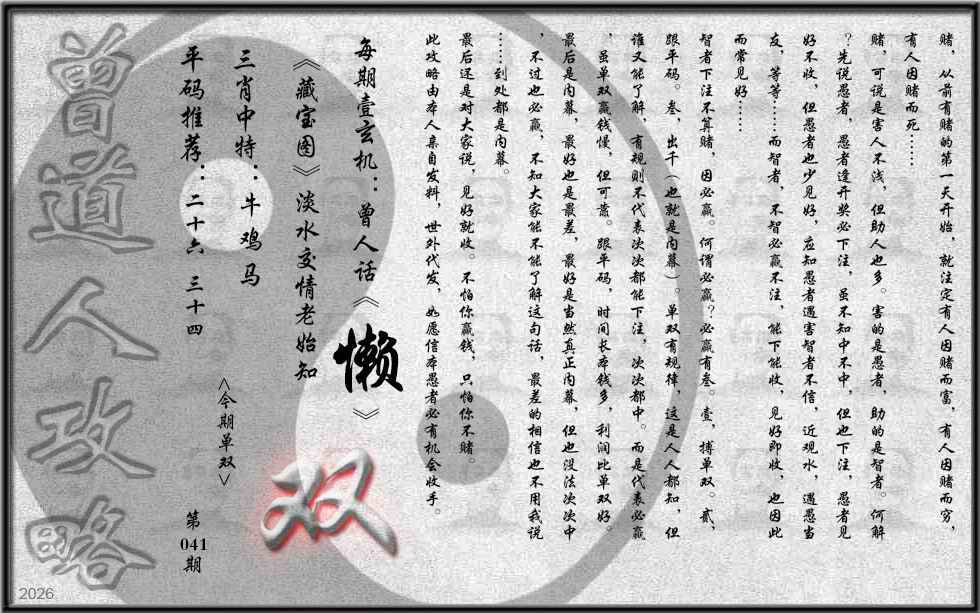 赌，从前有赌的第一天开始，就注定有人因赌而富，有人因赌而穷，
有人因赌而死……
赌，可说是害人不浅，但助人也多。害的是愚者，助的是智者。何解
？先说愚者，愚者逢开奖必下注，虽不知中不中，但也下注，愚者见
好不收，但愚者也少见好，应知愚者遇害智者不信，近观水，遇愚当
友，等等……而智者，不智必赢不注，能下能收，见好即收，也因此
而常见好……
智者下注不算赌，因必赢。何谓必赢？必赢有叁。壹，搏单双。贰，
跟平码。叁，出千（也就是内幕）。单双有规律，这是人人都知，但
谁又能了解，有规则不代表次次都能下注，次次都中。而是代表必赢
，虽单双赢钱慢，但可靠。跟平码，时间长本钱多，利润比单双好。
最后是内幕，最好也是最差，最好是当然真正内幕，但也没法次次中
，不过也必赢，不知大家能不能了解这句话，最差的相信也不用我说
……到处都是内幕。
最后还是对大家说，见好就收。不怕你赢钱，只怕你不赌。
此攻略由本人亲自发料，世外代发，如愿信本愚者必有机会收手。
每期壹玄机：曾人话《懒》
《藏宝图》淡水交情老始知
三肖中特：牛鸡马
平码推荐：二十六 三十四
<今期单双>
双
第041期
曾道人攻略
2026